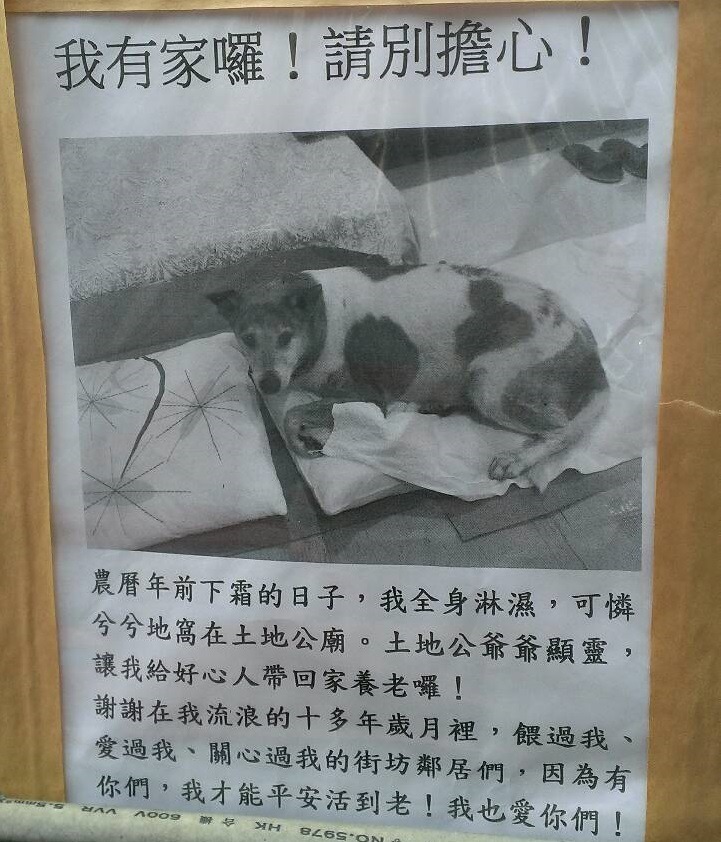 我有家囉！請別擔心！
農曆年前下霜的日子，我全身淋濕，可憐
兮兮地窩在土地公廟。土地公爺爺顯靈，
讓我給好心人帶回家養老囉！
謝謝在我流浪的十多年歲月裡，餵過我、
愛過我、關心過我的街坊鄰居們，因為有
你們，我才能平安活到老！我也愛你們！
NO.5978 HK 合機 600V VVR 5.5mm²